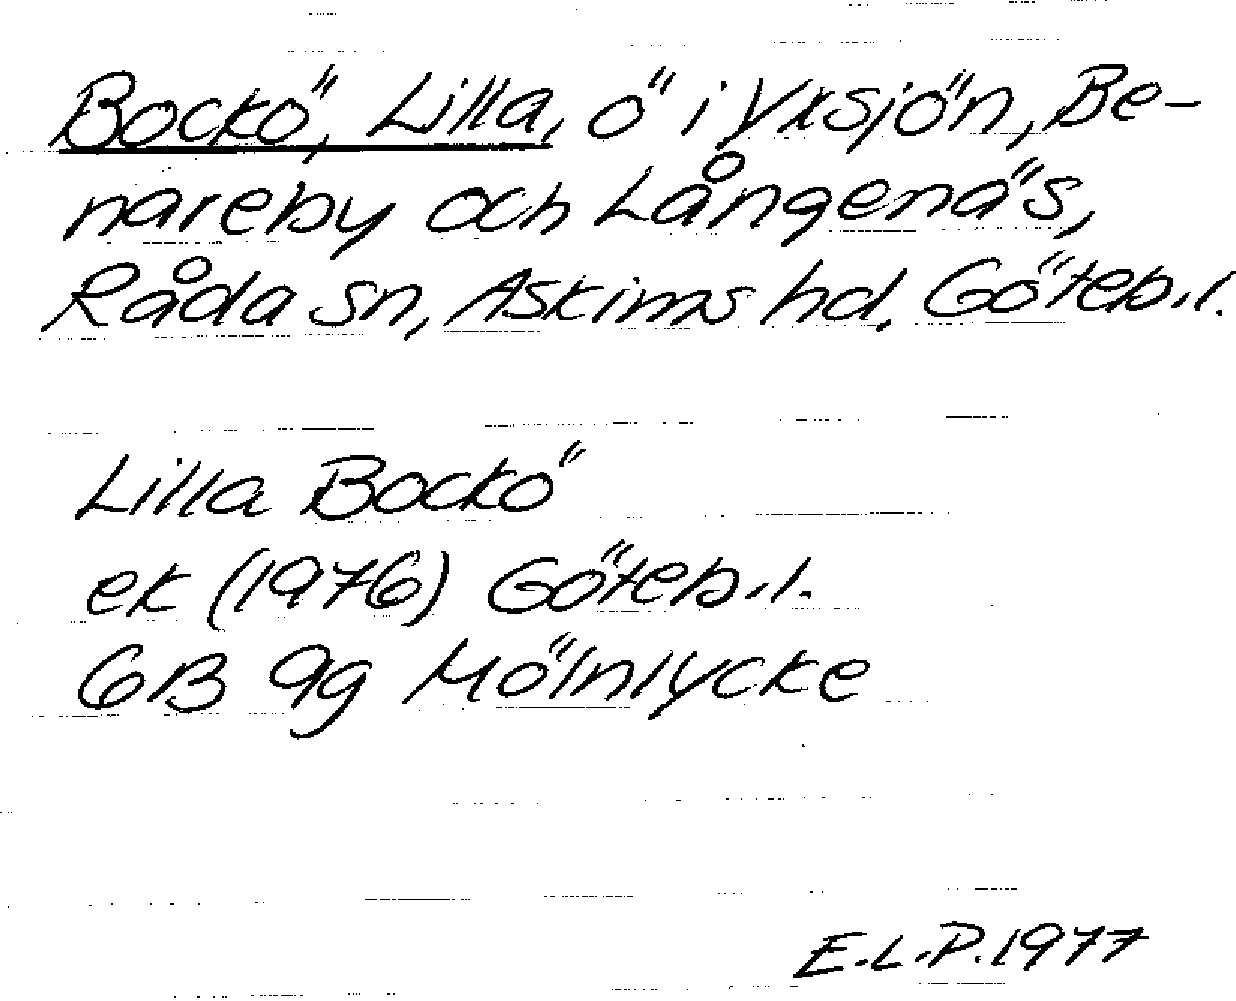 Bockö, Lilla, ö i Yxsjön, Be-
nareby och Långenäs,
Råda sn, Askims hd, Göteb.l.
Lilla Bockö
ek (1976) Göteb.l.
6B 9g Mölnlycke
E.L.P.1977